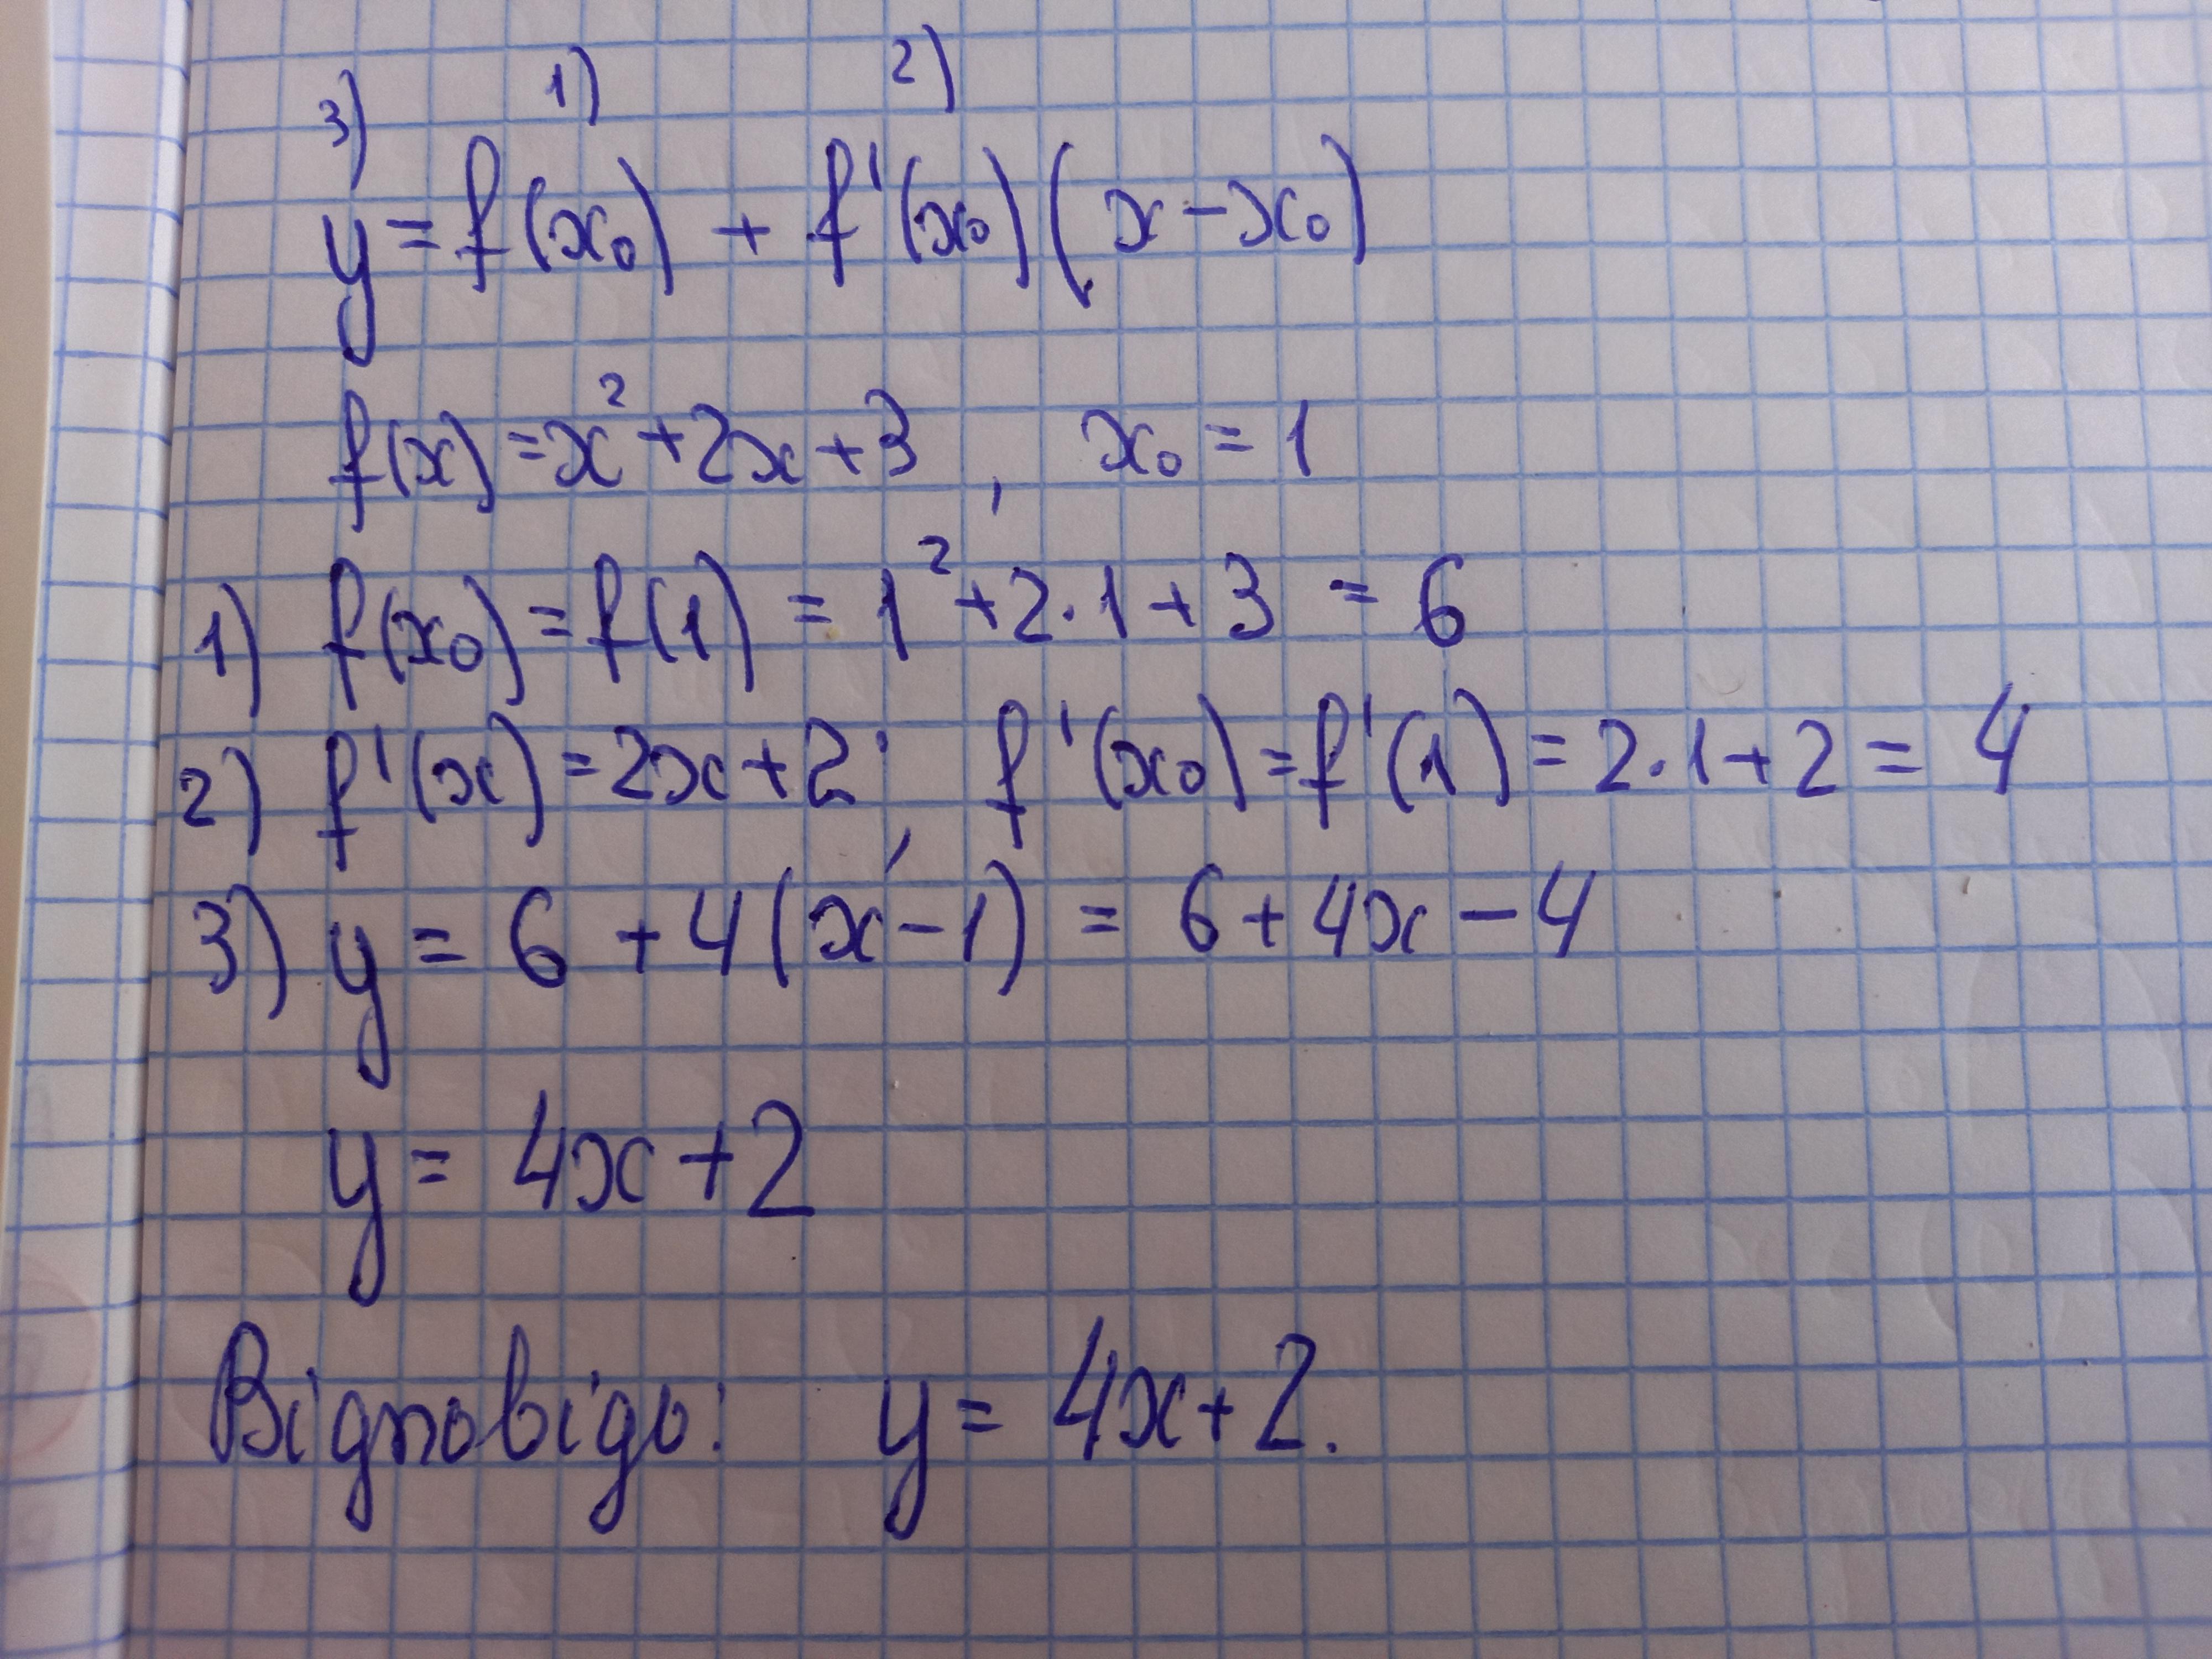 3) 1) 2)
y = f(x₀) + f'(x₀)(x - x₀)
f(x) = x² + 2x + 3 , x₀ = 1
1) f(x₀) = f(1) = 1² + 2·1 + 3 = 6
2) f'(x) = 2x + 2 ; f'(x₀) = f'(1) = 2·1 + 2 = 4
3) y = 6 + 4(x - 1) = 6 + 4x - 4
y = 4x + 2
Відповідь: y = 4x + 2.